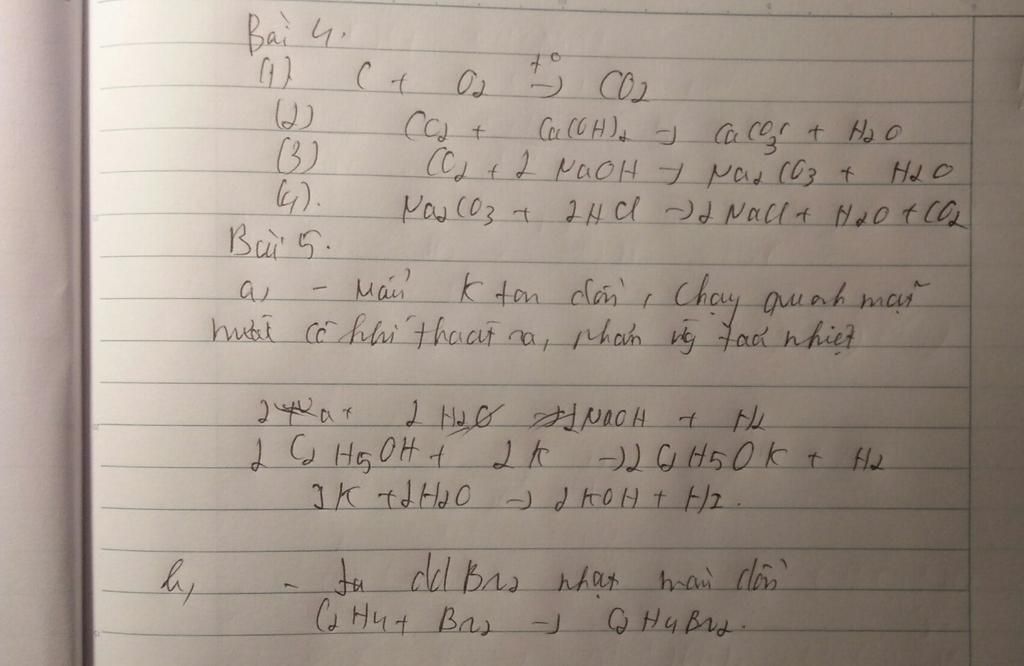 Bài 4.
(1) C + O2 t° → CO2
(2) CO2 + Ca(OH)2 → CaCO3 + H2O
(3) CO2 + 2 NaOH → Na2CO3 + H2O
(4). Na2CO3 + 2HCl → 2 NaCl + H2O + CO2
Bài 5.
a, - Mẩu K tan dần, chạy quanh mặt
nước có khí thoát ra, phản ứng toả nhiệt
2 Na + 2 H2O → 2NaOH + H2
2 C2H5OH + 2K → 2 C2H5OK + H2
2K + 2H2O → 2KOH + H2.
b, - dd Br2 nhạt màu dần
C2H4 + Br2 → C2H4Br2.